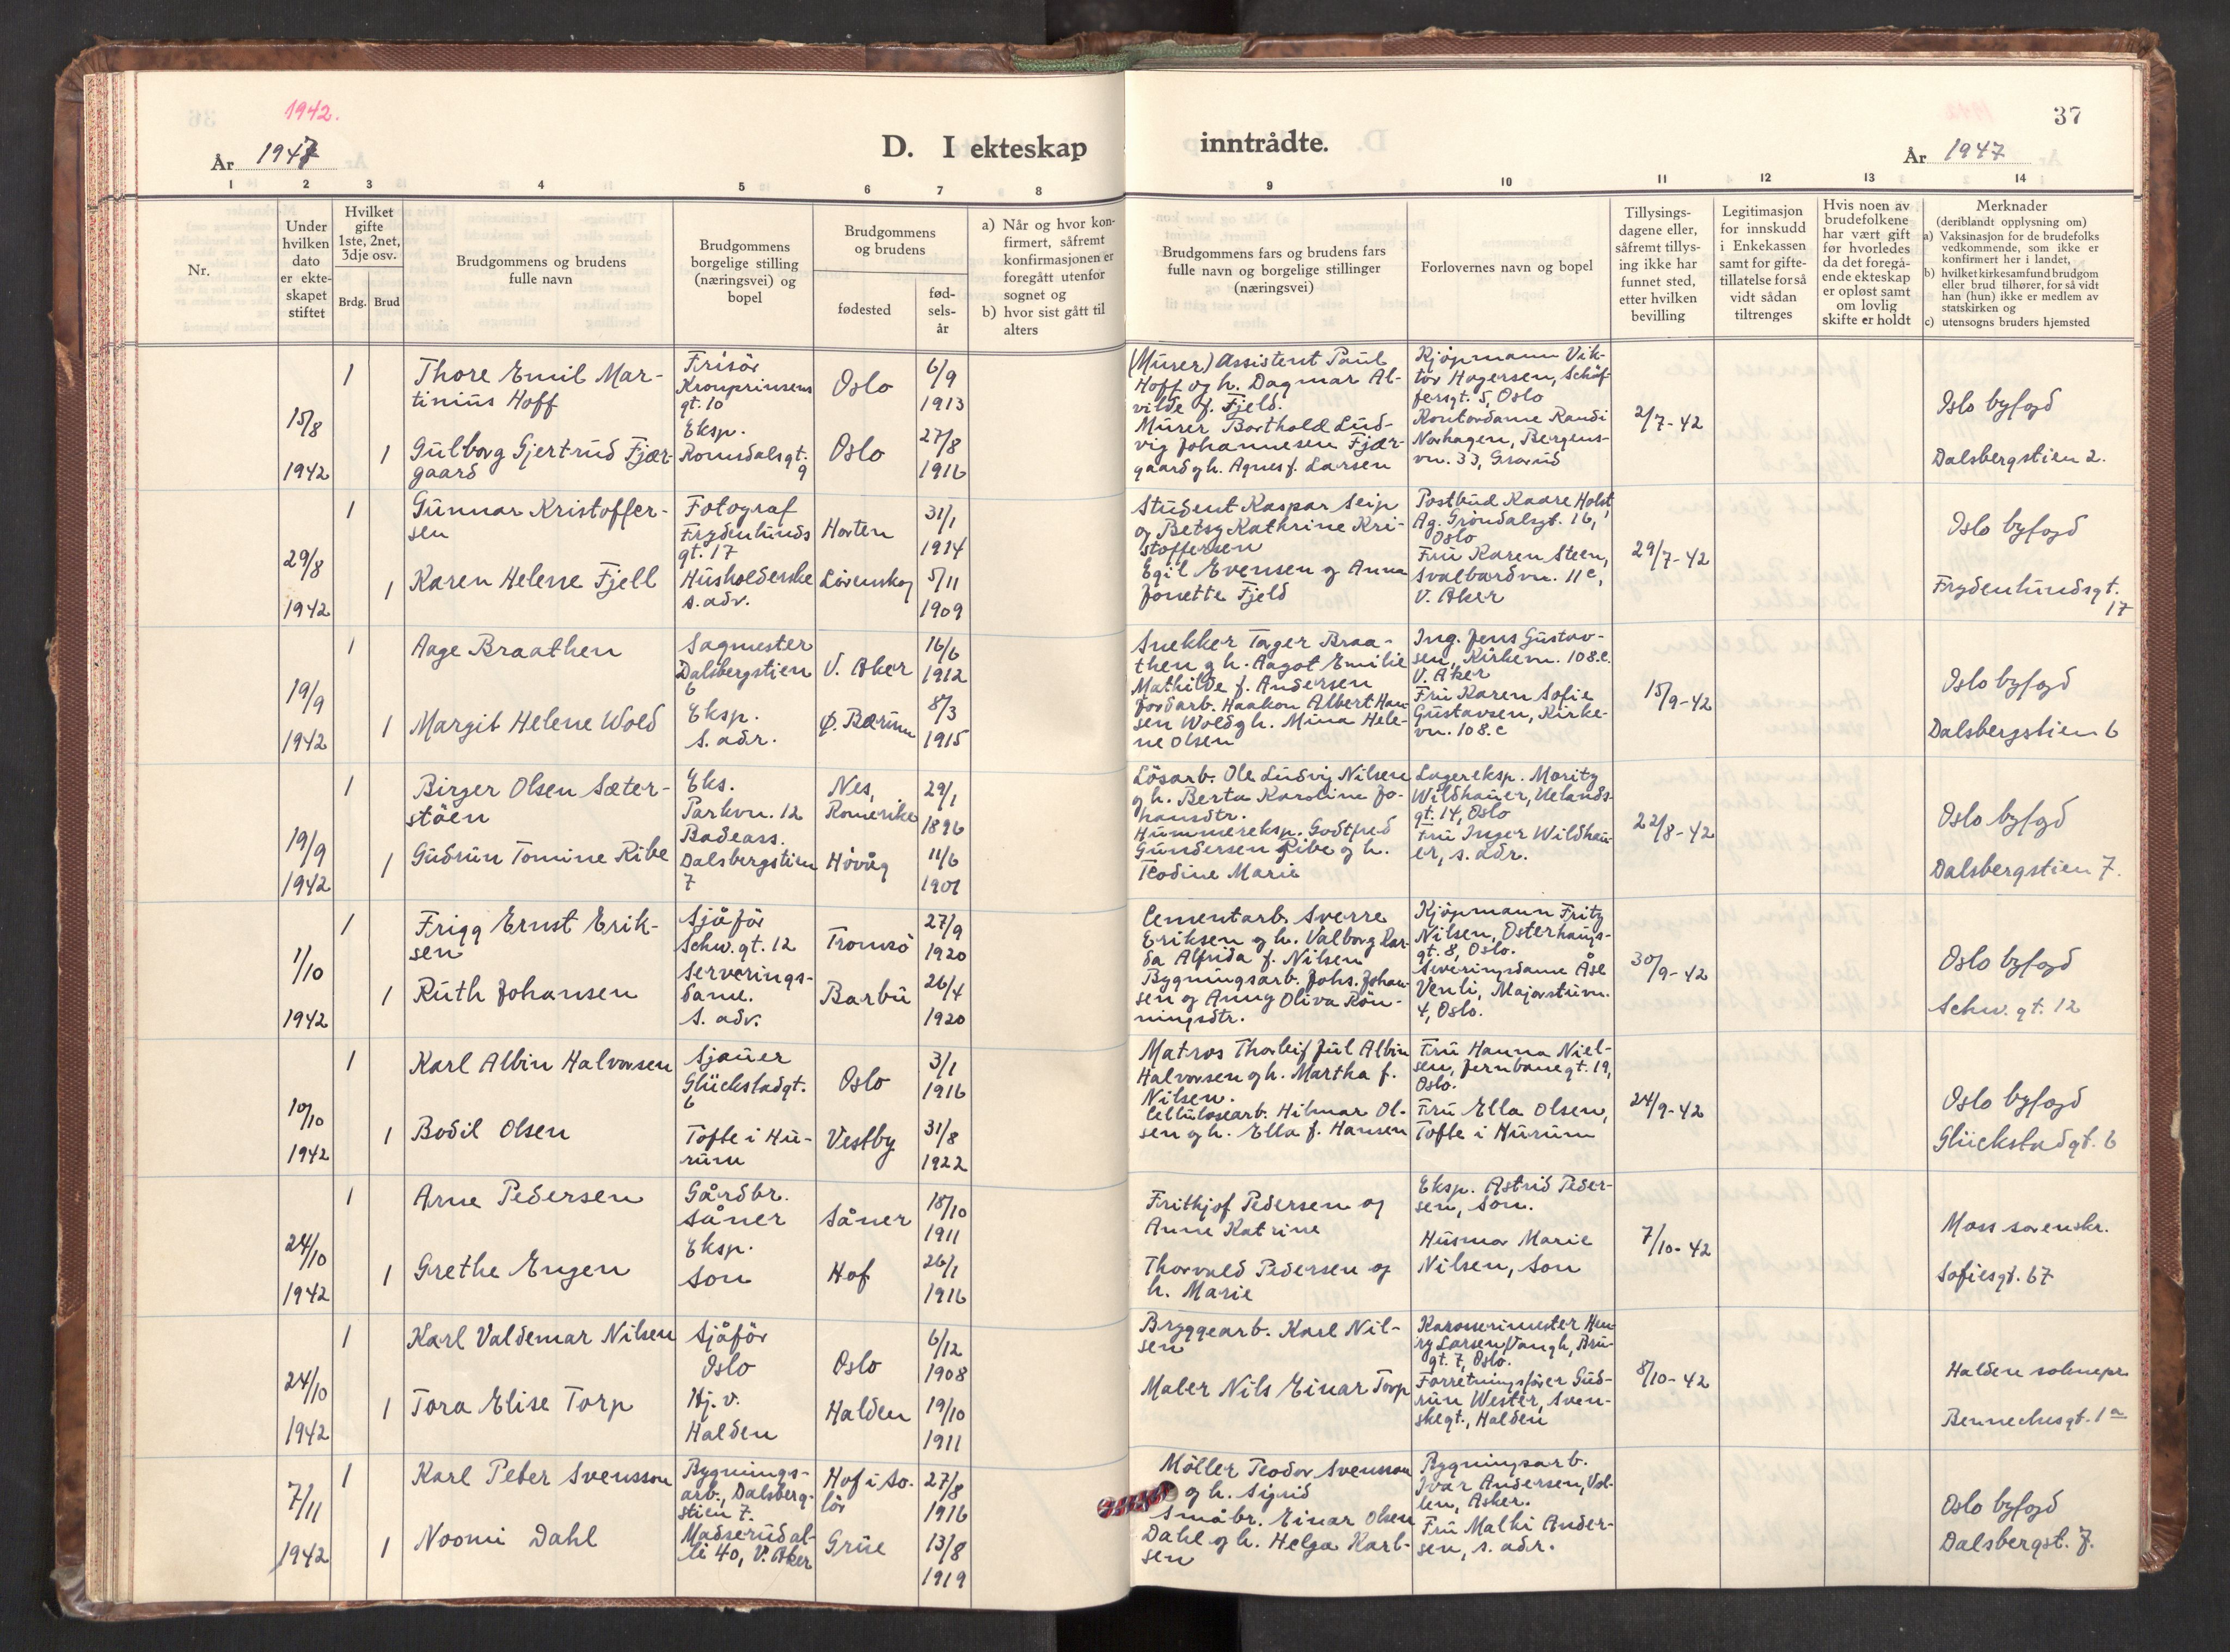 1942.
År 1947
D. I ekteskap inntrådte.
37
År 1947
1 2 3 4 5 6 7 8 9 10 11 12 13 14
Nr.
Under hvilken dato er ekte- skapet stiftet
Hvilket gifte 1ste, 2net, 3dje osv.
Brdg. Brud
Brudgommens og brudens fulle navn
Brudgommens borgelige stilling (næringsvei) og bopel
Brudgommens og brudens
fødested
fød- sels- år
a) Når og hvor kon- firmert, såfremt konfirmasjonen er foregått utenfor sognet og
b) hvor sist gått til alters
Brudgommens fars og brudens fars fulle navn og borgelige stillinger (næringsvei)
Forlovernes navn og bopel
Tillysings- dagene eller, såfremt tillys- ing ikke har funnet sted, etter hvilken bevilling
Legitimasjon for innskudd i Enkekassen samt for gifte- tillatelse for så vidt sådan tiltrenges
Hvis noen av brudefolkene har vært gift før hvorledes da det foregå- ende ekteskap er opløst samt om lovlig skifte er holdt
Merknader
(deriblandt opplysning om)
a) Vaksinasjon for de brudefolks vedkommende, som ikke er konfirmert her i landet,
b) hvilket kirkesamfund brudgom eller brud tilhører, for så vidt han (hun) ikke er medlem av statskirken og
c) utensogns bruders hjemsted
15/8
1942
1
Thore Emil Mar-
tinius Hoff
Frisör
Kronprinsens
gt. 10
Oslo
6/9
1913
(Murer) Assistent Paul
Hoff og h. Dagmar Al-
vilde f. Fjeld.
Kjöpmann Vik-
tor Hagersen, Schöf-
fersgt. 5, Oslo
2/7-42
Oslo byfogd
1
Gulborg Gjertrud Fjær-
gaard
Eksp.
Romsdalsgt.
9
Oslo
27/8
1916
Murer Barthold Lud-
vig Johannesen Fjær-
gaard g h. Agnes f. Larsen
Kontordame Randi
Norhagen, Bergens-
vn. 33, Grorud
Dalsbergstien 2.
29/8
1942
1
Gunnar Kristoffer-
sen
Fotograf
Frydenlunds
gt. 17
Horten
31/1
1914
Student Kaspar Seip
og Betsy Kathrine Kri-
stoffersen
Postbud Kaare Holst,
Ag. Gröndalsgt. 16,
Oslo
29/7-42
Oslo byfogd
1
Karen Helene Fjell
Husholderske
s. adr.
Lörenskog
5/11
1909
Egil Evensen og Anna
Jonette Fjeld
Fru Karen Steen,
Svalbardvn. 11 c,
V. Aker
Frydenlundsgt.
17
19/9
1942
1
Aage Braathen
Sagmester
Dalsbergstien
6
V. Aker
16/6
1912
Snekker Torger Braa-
then g h. Aagot Emilie
Mathilde f. Andersen
Ing. Jens Gustav-
sen, Kirkevn. 108.c.
V. Aker
15/9-42
Oslo byfogd
1
Margit Helene Wold
Eksp.
s. adr.
Ø. Bærum
8/3
1915
Jordarb. Haakon Albert Han-
sen Wold g h. Mina Hele-
ne Olsen
Fru Karen Sofie
Gustavsen, Kirke-
vn. 108.c
Dalsbergstien 6
19/9
1942
1
Birger Olsen Sæter-
stöen
Eks.
Parkvn. 12
Nes,
Romerike
29/1
1896
Lösarb. Ole Ludvig Nilsen
g h. Berta Karoline Jo-
hansdtr.
Lagereksp. Moritz
Wildhauer, Uelands-
gt. 14, Oslo
22/8-42
Oslo byfogd
1
Gudrun Tomine Ribe
Badeass.
Dalsbergstien
7
Hövåg
11/6
1901
Hummereksp. Godtfred
Gundersen Ribe g h.
Teodine Marie
Fru Inger Wildhau-
er, s. adr.
Dalsbergstien 7.
1/10
1942
1
Frigg Ernst Erik-
sen
Sjåför
Schw. gt. 12
Tromsö
27/9
1920
Cementarb. Sverre
Eriksen g h. Valborg Bar-
da Alfrida f. Nilsen
Kjöpmann Fritz
Nilsen, Osterhaugs-
gt. 8, Oslo.
30/9-42
Oslo byfogd
1
Ruth Johansen
Serverings-
dame.
s. adr.
Barbu
26/4
1920
Bygningsarb. Johs. Johan-
sen og Anny Oliva Rön-
ningsdtr.
Severingsdame Åse
Venli, Majorstuvn.
4, Oslo.
Schw. gt. 12
10/10
1942
1
Karl Albin Halvorsen
Sjauer
Glückstadgt.
6
Oslo
3/1
1916
Matros Thorleif Jul Albin
Halvorsen g h. Martha f.
Nilsen.
Fru Hanna Niel-
sen, Jernbanegt. 19,
Oslo.
24/9-42
Oslo byfogd
1
Bodil Olsen
Tofte i Hu-
rum
Vestby
31/8
1922
Cellulosearb. Hilmar Ol-
sen g h. Ella f. Hansen
Fru Ella Olsen,
Tofte i Hurum
Glückstadgt. 6
24/10
1942
1
Arne Pedersen
Gårdbr.
Såner
Såner
18/10
1911
Frithjof Pedersen og
Anne Katrine
Eksp. Astrid Peder-
sen, Son.
7/10-42
Moss sorenskr.
1
Grethe Engen
Eksp.
Son
Hof
26/1
1916
Thorvald Pedersen og
h. Marie
Husmor Marie
Nilsen, Son
Sofiesgt. 67
24/10
1942
1
Karl Valdemar Nilsen
Sjåför
Oslo
Oslo
6/12
1908
Bryggearb. Karl Nil-
sen
Karosserimester Hen-
ry Larsen Vangh, Bru-
gt. 7, Oslo.
8/10-42
Halden
1
Tora Elise Torp
Hj. v.
Halden
Halden
19/10
1911
Maler Nils Einar Torp
Forretningsfører Gud-
run Wester, Sven-
skegt., Halden
Bennechesgt. 1a
7/11
1942
1
Karl Peter Svensson
Bygnings-
arb., Dalsberg-
stien 7.
Hof i So-
lör
27/8
1916
Möller Teodor Svensson
og h. Sigrid
Bygningsarb.
Ivar Andersen, Vol-
len, Asker.
Oslo byfogd
1
Noomi Dahl
Madserudal-
le 40, V. Aker
Grue
13/8
1919
Småbr. Einar Olsen
Dahl g h. Helga Karl-
sen
Fru Malhi Ander-
sen, s. adr.
Dalsbergst. 7.